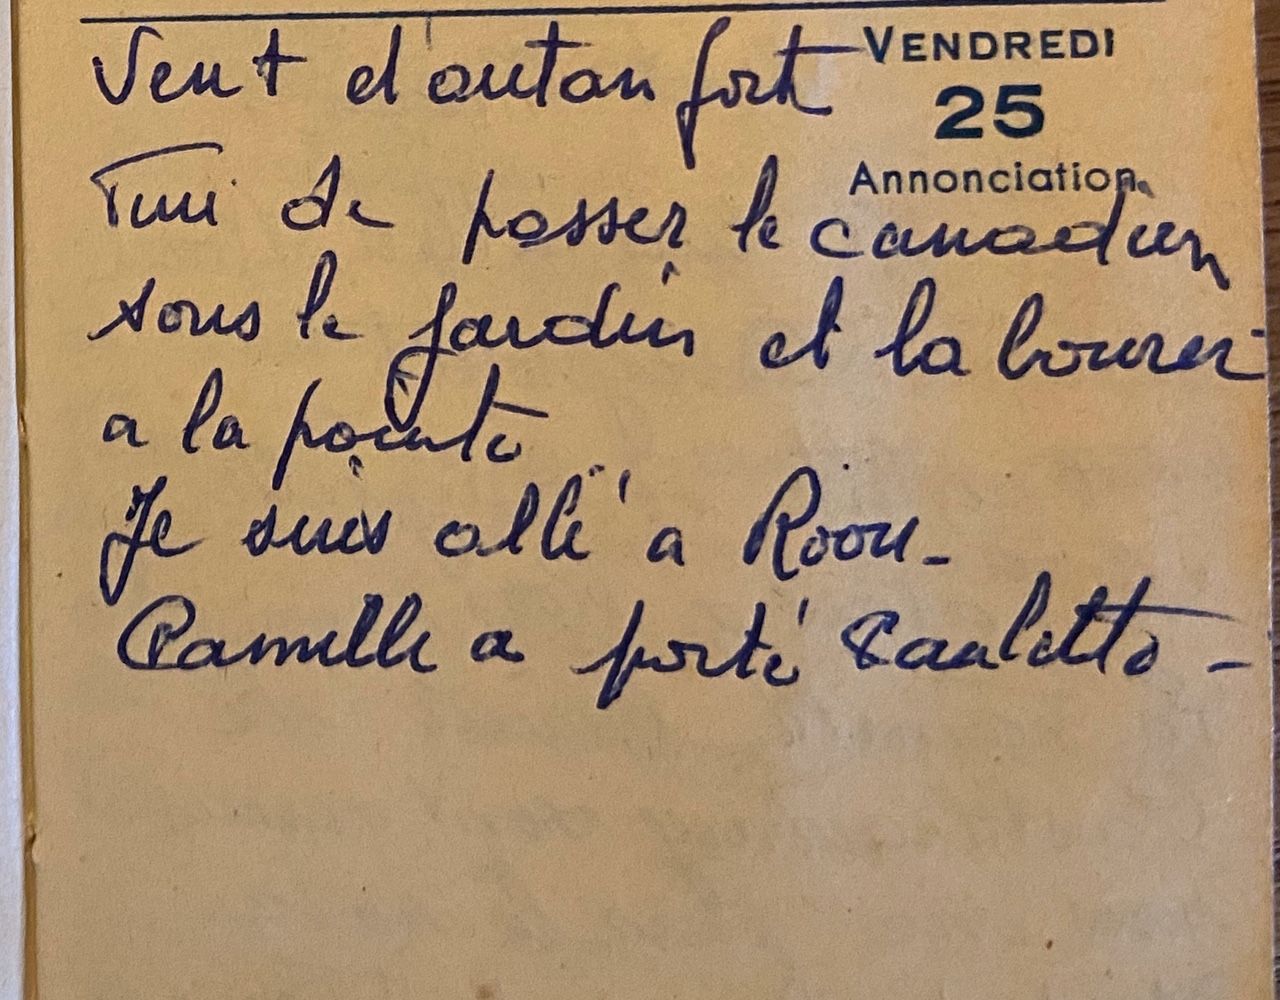 Vent d'autan fort VENDREDI
25
Annonciation
Fini de passer le canadien
sous le jardin et labourer
a la pointe
Je suis allé a
Camille a porté